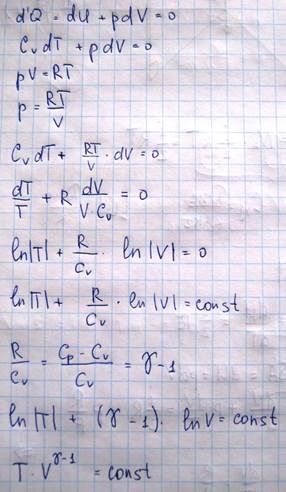 d'Q = dU + pdV = 0
CvdT + pdV = 0
pV = RT
p = RT/V
CvdT + RT/V · dV = 0
dT/T + R dV/V·Cv = 0
ln|T| + R/Cv · ln|V| = 0
ln|T| + R/Cv · ln|V| = const
R/Cv = Cp - Cv/Cv = γ - 1
ln|T| + (γ - 1) · lnV = const
T · V^γ-1 = const